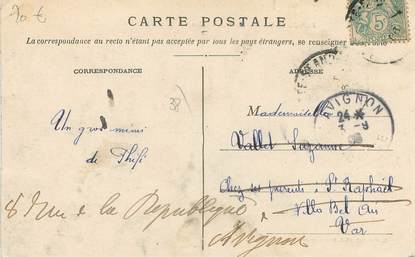 20 €
CARTE POSTALE
La correspondance au recto n'étant pas acceptée par tous les pays étrangers, se renseigner
CORRESPONDANCE
ADRESSE
5
38
AVIGNON
24
Mademoiselle
Vallet Suzanne
Chez ses parents à St Raphaël
Villa Bel
Var
Un gros mimi
de Fifi
8 Rue de la République
Avignon